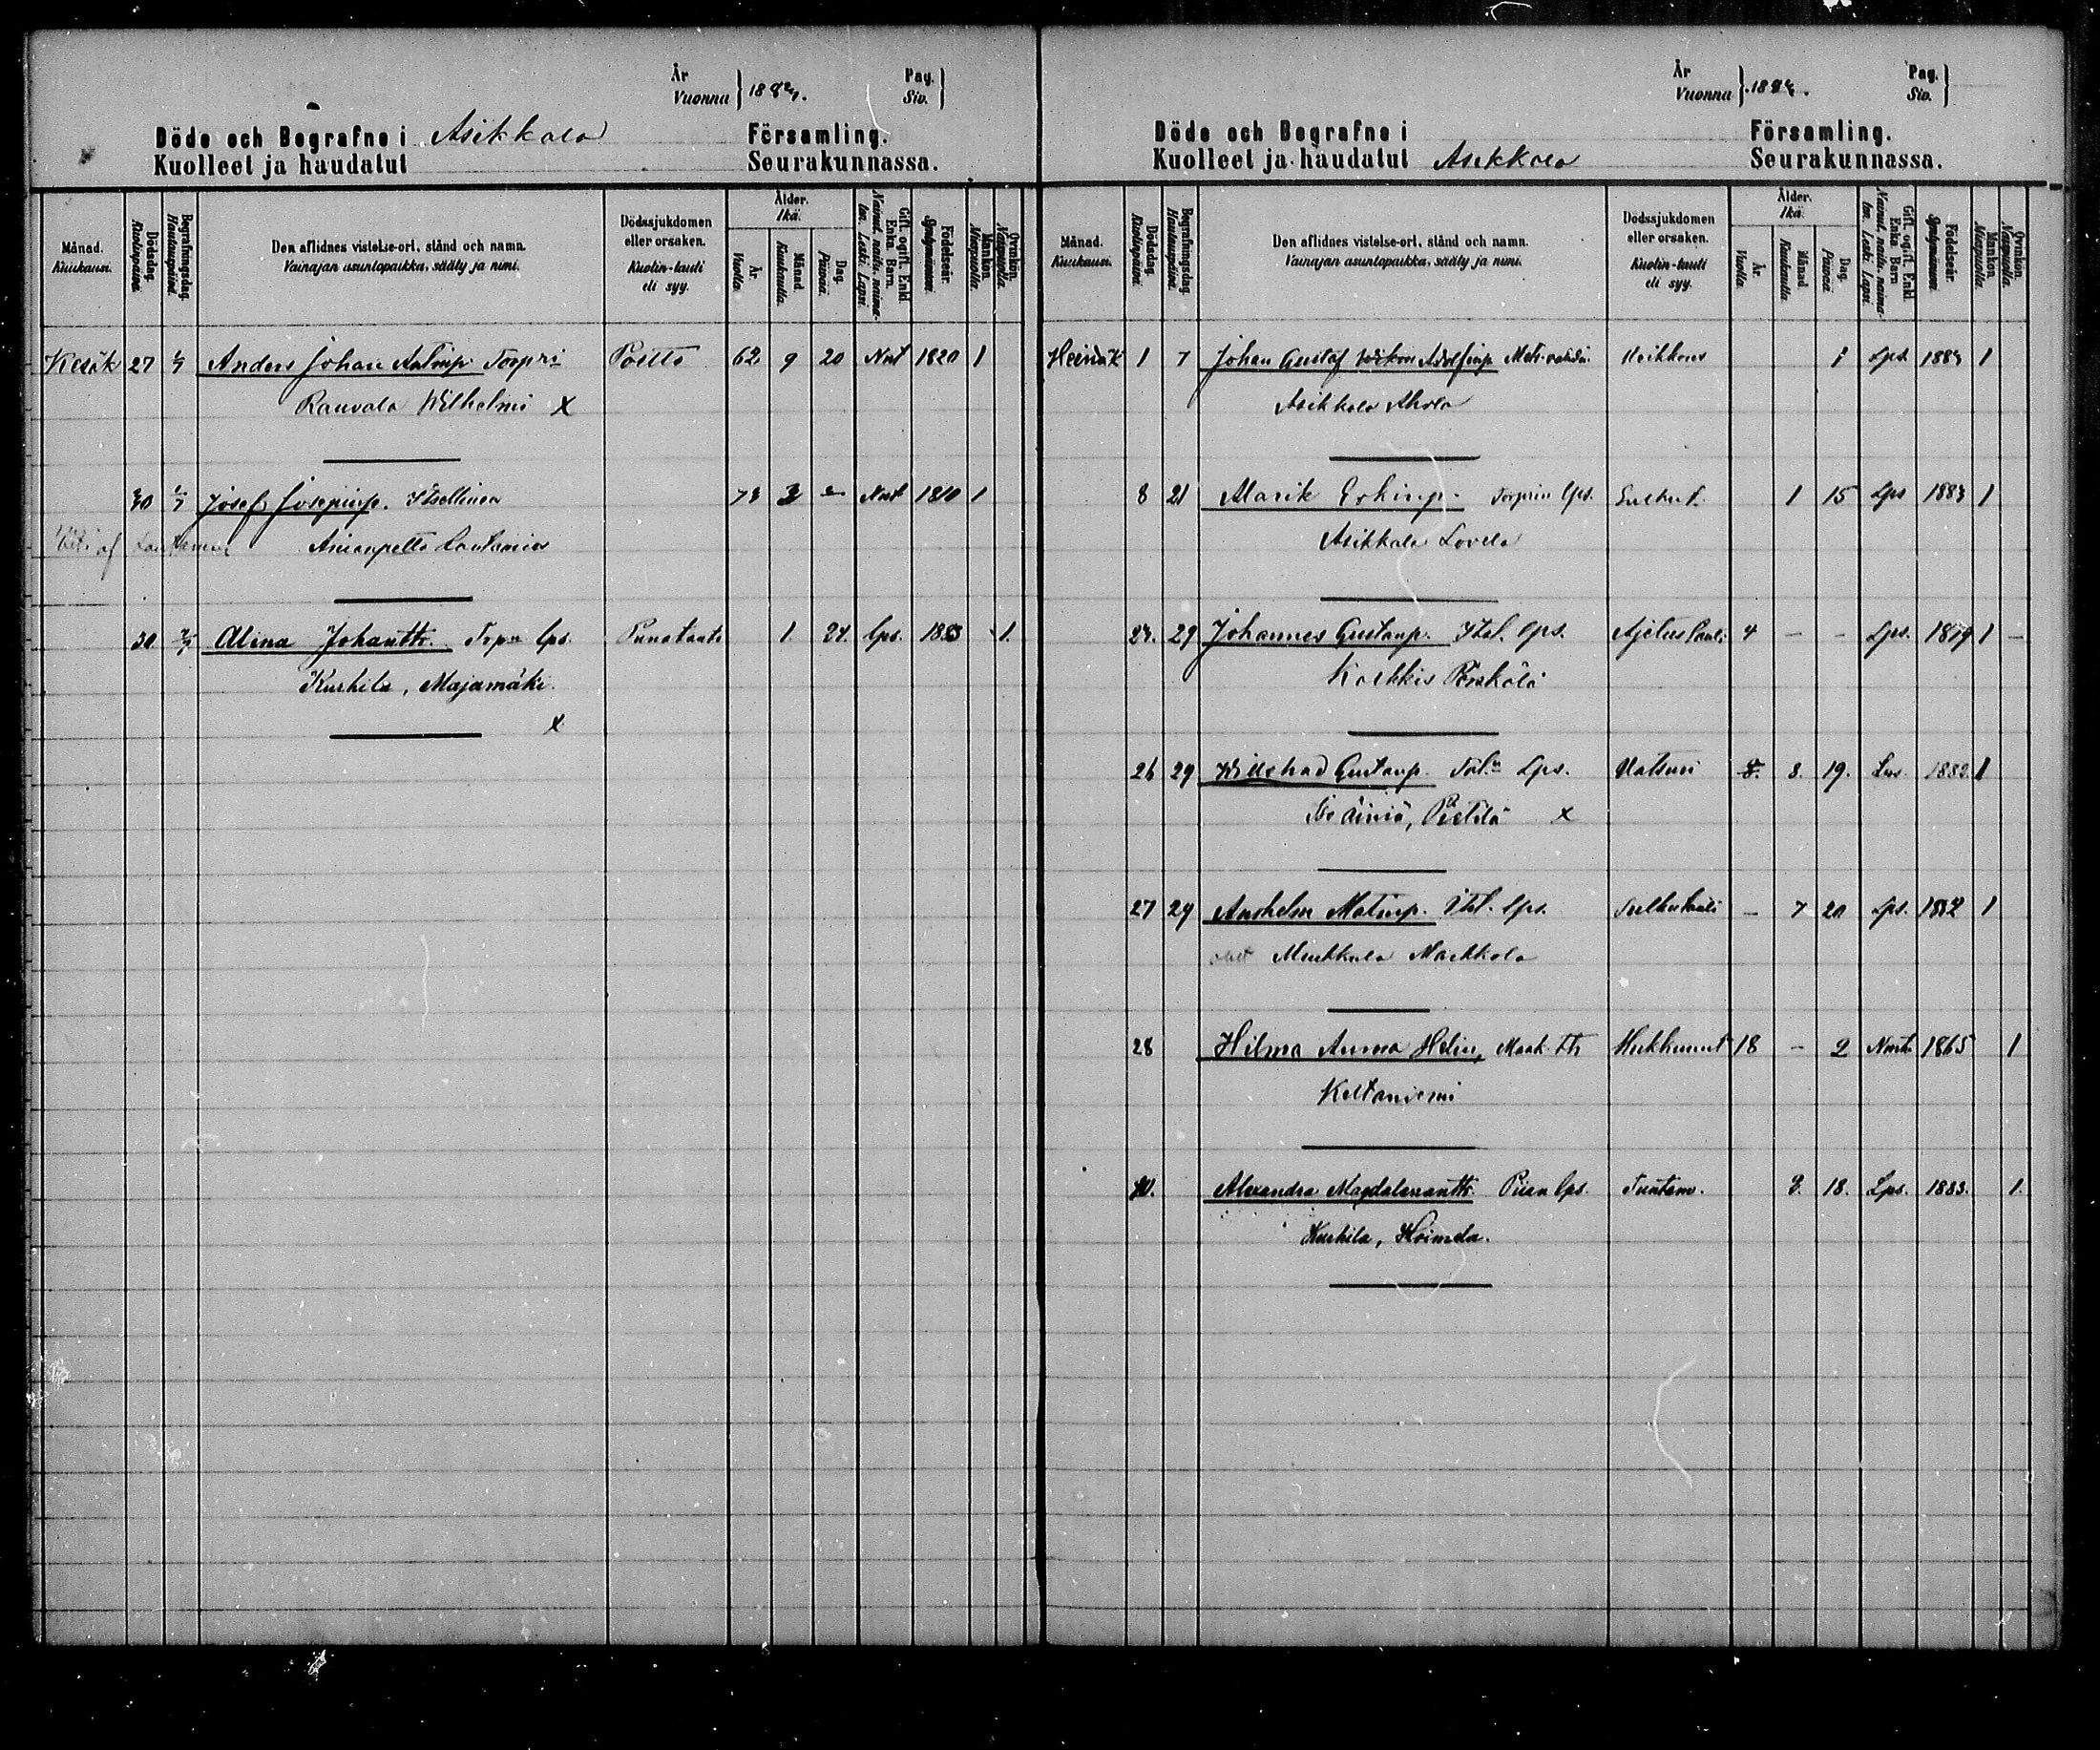 År
Vuonna } 1883.
Pag.
Siv. }
Döde och Begrafne i Asikkala Församling.
Kuolleet ja haudatut Seurakunnassa.
Månad. Kuukausi.
Dödsdag. Kuolinpäivä.
Begrafningsdag. Hautauspäivä.
Den aflidnes vistelse-ort, stånd och namn.
Vainajan asuntopaikka, sääty ja nimi.
Dödssjukdomen eller orsaken.
Kuolin-tauti eli syy.
Ålder. Ikä.
År Vuotta.
Månad Kuukautta.
Dag. Päivää.
Gift. ogift. Enkl. Enka. Barn.
Nainut, naitu, naima-ton. Leski. Lapsi.
Födelseår. Syntymävuosi.
Mankön. Miespuolia.
Qvinkön. Naispuolia.
Kesäk 27 1/7 Anders Johan Antinp. Torpri Poltto 62 9 20 Nut 1820 1
Rauvala Wilhelmi X
30 1/7 Josef Josepinp. Itsellinen 73 3 Nut 1810 1
Anianpelto Lautamies
30 Alina Johantr. Torp. lps. Punatauti 1 24. lps. 1883 1.
Kurhila, Majamäki.
X
År
Vuonna } 1883.
Pag.
Siv. }
Döde och Begrafne i Församling.
Kuolleet ja haudatut Asikkala Seurakunnassa.
Månad. Kuukausi.
Dödsdag. Kuolinpäivä.
Begrafningsdag. Hautauspäivä.
Den aflidnes vistelse-ort, stånd och namn.
Vainajan asuntopaikka, sääty ja nimi.
Dödssjukdomen eller orsaken.
Kuolin-tauti eli syy.
Ålder. Ikä.
År. Vuotta.
Månad Kuukautta.
Dag. Päivää
Gift. ogift. Enkl. Enka. Barn
Nainut, naitu, naima-ton. Leski. Lapsi.
Födelseår. Syntymävuosi.
Mankön. Miespuolia.
Qvinkön. Naispuolia.
Heinäk 1 7 Johan Gustaf Adolfinp. Heikkous 1 Lps. 1883 1
Asikkala Ahola
8 21 Maurits Erkinp. Torpin lps. 1 15 Lps 1883 1
Asikkala
29 Johannes Gustanp. Itsel. lps. Ajetus tauti 4 - - Lps. 1879 1 -
Kalkkis
26 29 Willehad Gustanp. Tal:n Lps. Vatsuri 8. 19. Lps. 1882. 1
Iso äiniö, Pietilä x
27 29 Anshelm Matinp. Itsel. lps. Sulkutauti - 7 20 Lps. 1882 1
Maikkola
28 Hilma Anna Helin, Hukkunut 18 - 2 1865 1
Keltaniemi
30. Alexandra Magdalenantr. Piian lps. Tuntem. 18. Lps. 1883. 1.
Kurhila, Hoimela.